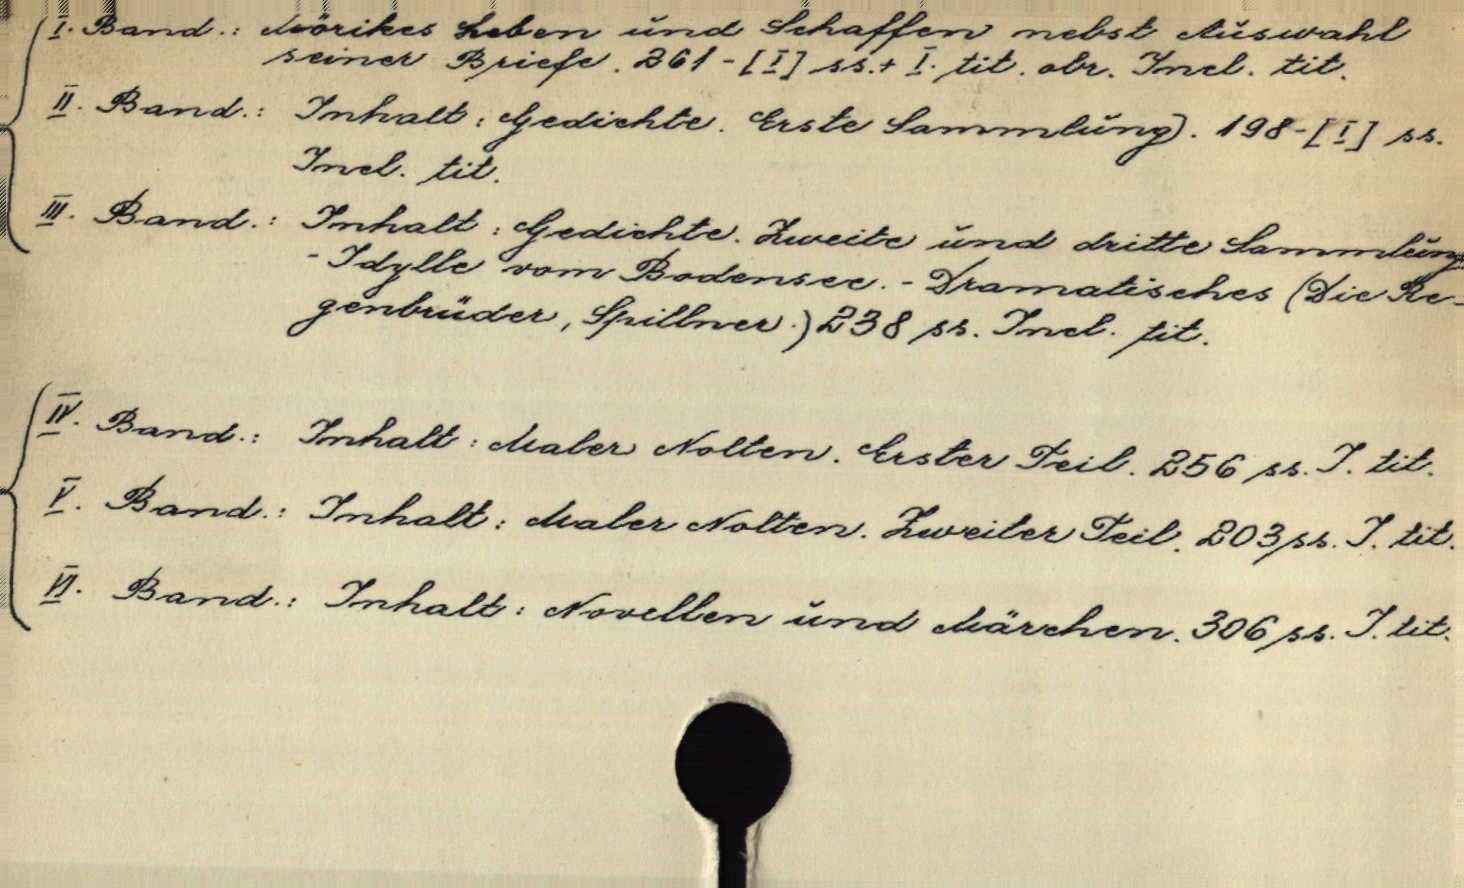 I. Band.: Mörikes Leben und Schaffen nebst Auswahl
seiner Briefe. 261-[I] ss.+ I. tit. obr. Incl. tit.
II. Band.: Inhalt: Gedichte. Erste Sammlung). 198-[I] ss.
Incl. tit.
III. Band.: Inhalt: Gedichte. Zweite und dritte Sammlung
- Idylle vom Bodensee. - Dramatisches (Die Re-
genbrüder, Spillner.) 238 ss. Incl. tit.
IV. Band.: Inhalt: Maler Nolten. Erster Teil. 256 ss. I. tit.
V. Band.: Inhalt: Maler Nolten. Zweiter Teil. 203 ss. I. tit.
VI. Band.: Inhalt: Novellen und Märchen. 306 ss. I. tit.